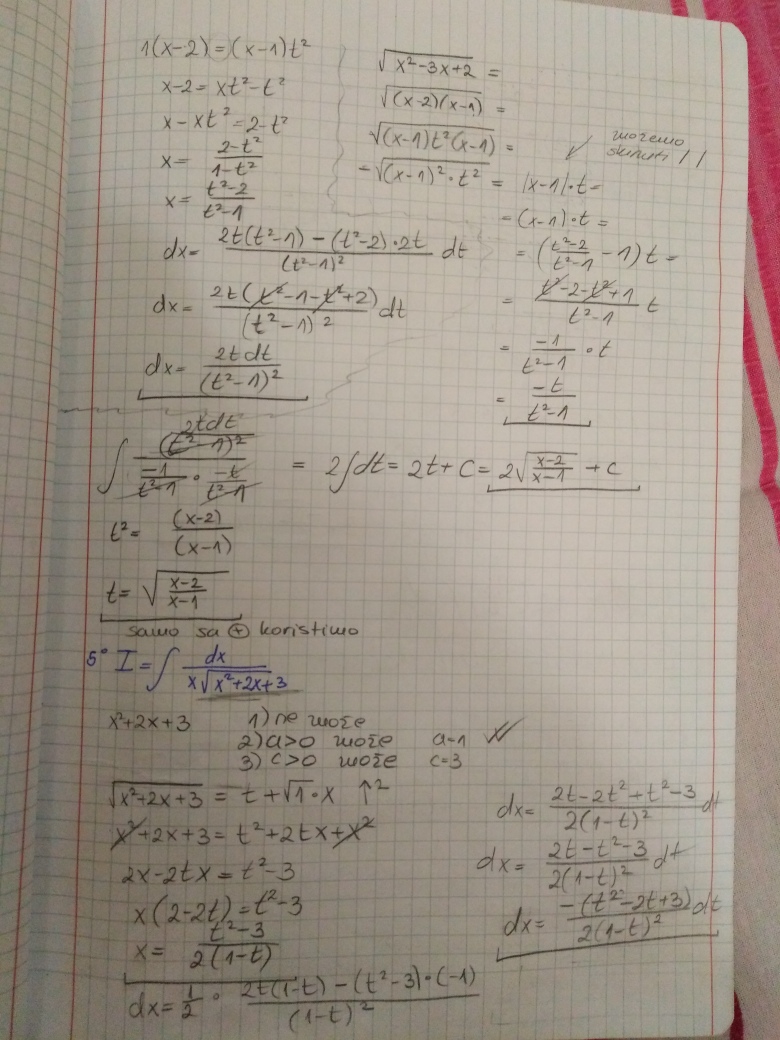 1(x-2)=(x-1)t²
x-2=xt²-t²
x-xt²=2-t²
x= (2-t²)/(1-t²)
x= (t²-2)/(t²-1)
√(x²-3x+2) =
√((x-2)(x-1)) =
√((x-1)t²(x-1)) =
možemo
skinuti / /
-√((x-1)²·t²) = |x-1|·t=
= (x-1)·t =
dx= (2t(t²-1)-(t²-2)·2t)/(t²-1)² dt
= ((t²-2)/(t²-1) -1)t =
dx= (2t(t²-1-t²+2))/(t²-1)² dt
= (t²-2-t²+1)/(t²-1) t
dx= (2t dt)/(t²-1)²
= (-1)/(t²-1) · t
= (-t)/(t²-1)
∫ ((2tdt)/(t²-1)²)/((-1)/(t²-1) · (-t)/(t²-1)) = 2∫dt = 2t+C = 2√((x-2)/(x-1)) +c
t²= (x-2)/(x-1)
t= √((x-2)/(x-1))
samo sa ⊕ koristimo
5° I=∫ dx/(x√(x²+2x+3))
x²+2x+3 1) ne može
2) a>0 može a=1
3) c>0 može c=3
√(x²+2x+3) = t+√1·x ↑²
x²+2x+3=t²+2tx+x²
2x-2tx=t²-3
x(2-2t)=t²-3
x= (t²-3)/(2(1-t))
dx= 1/2 · (2t(1-t)-(t²-3)·(-1))/(1-t)²
dx= (2t-2t²+t²-3)/(2(1-t)²) dt
dx= (2t-t²-3)/(2(1-t)²) dt
dx= (-(t²-2t+3))/(2(1-t)²) dt